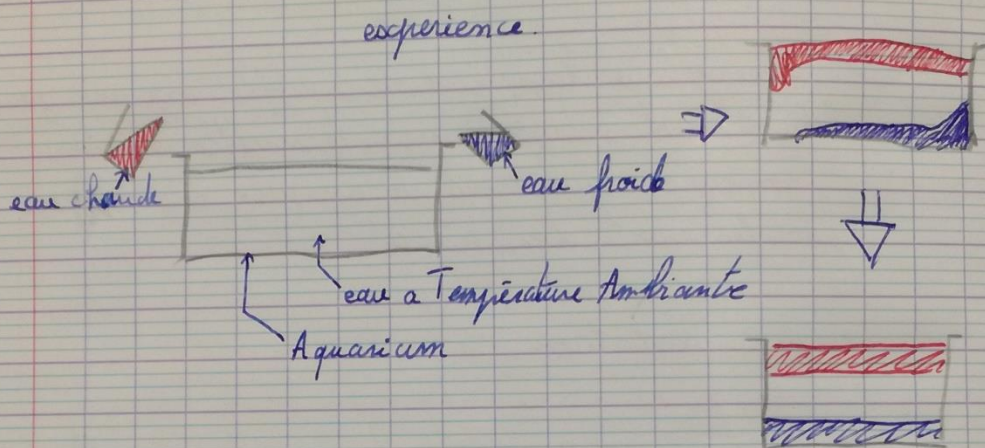 experience.
eau chaude
eau froide
eau a Température Ambiante
Aquarium